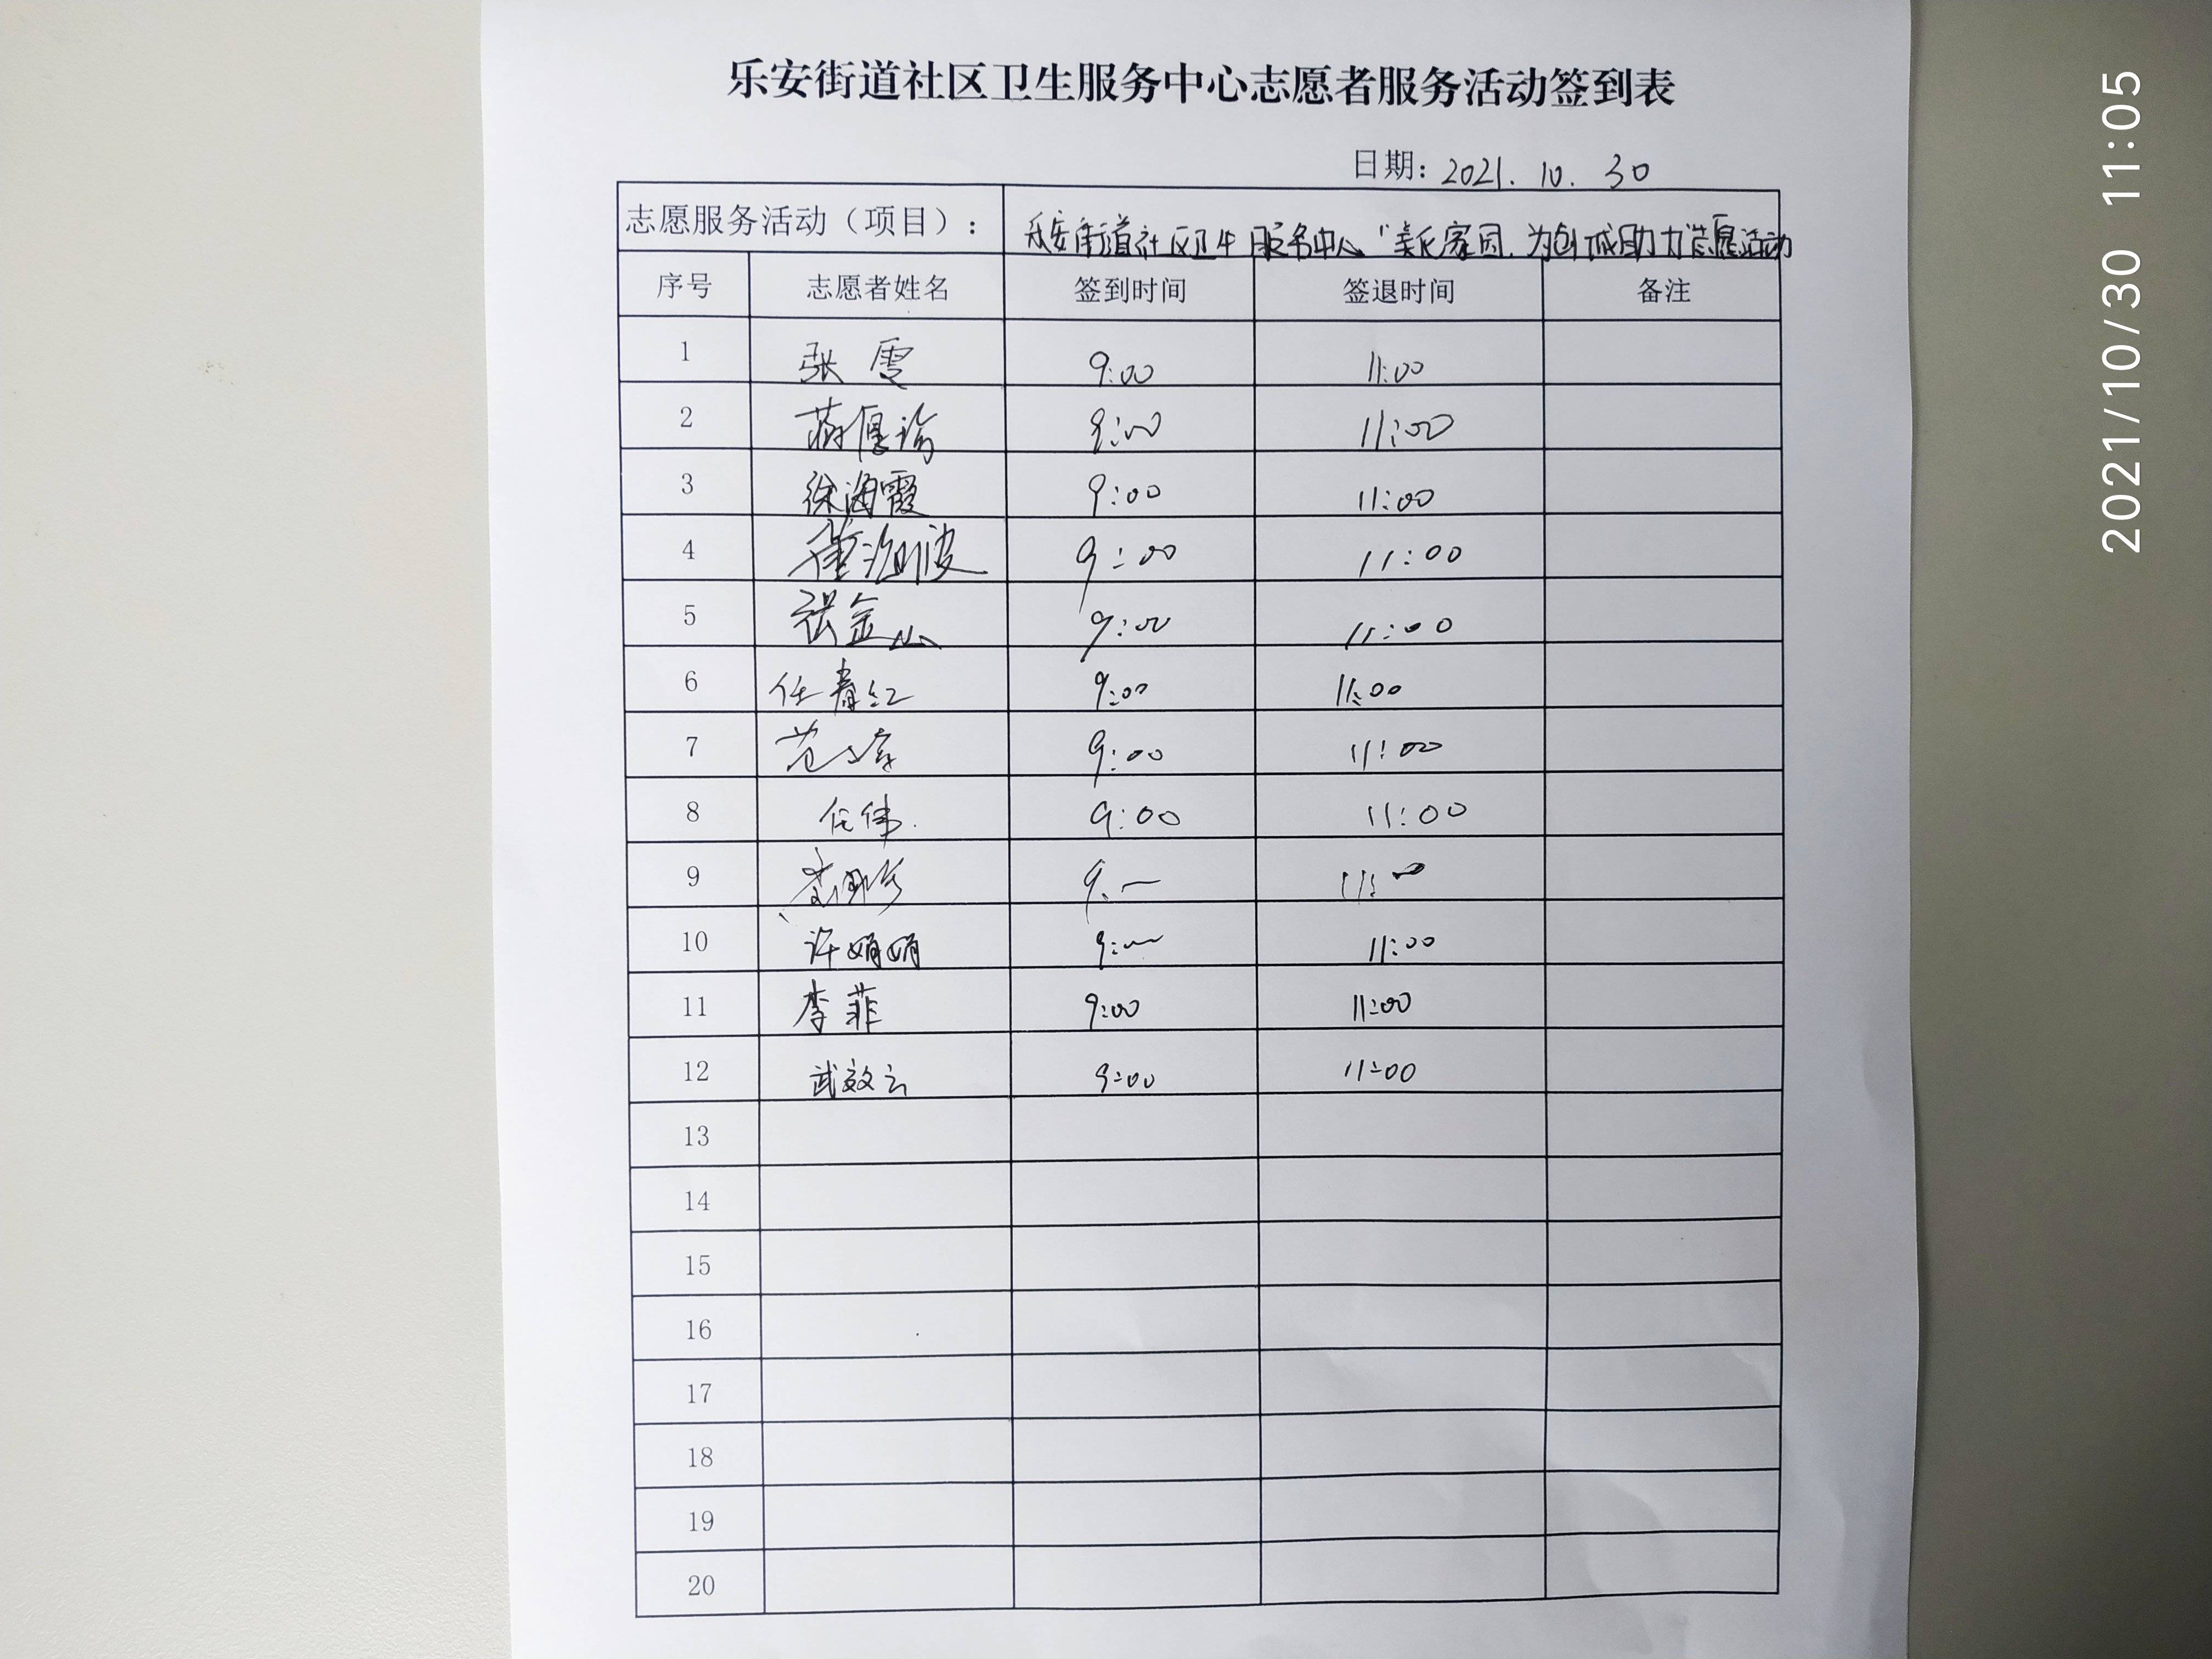 乐安街道社区卫生服务中心志愿者服务活动签到表
日期: 2021.10.30
志愿服务活动（项目）： 乐安街道社区卫生服务中心“美化家园，为创城助力”志愿活动
序号 志愿者姓名 签到时间 签退时间 备注
1 张雪 9:00 11:00
2 9:00 11:00
3 徐海霞 9:00 11:00
4 9:00 11:00
5 张金山 9:00 11:00
6 任春红 9:00 11:00
7 9:00 11:00
8 任伟 9:00 11:00
9
10 许娟娟 9:00 11:00
11 李菲 9:00 11:00
12 武效云 9:00 11:00
13
14
15
16
17
18
19
20
2021/10/30 11:05